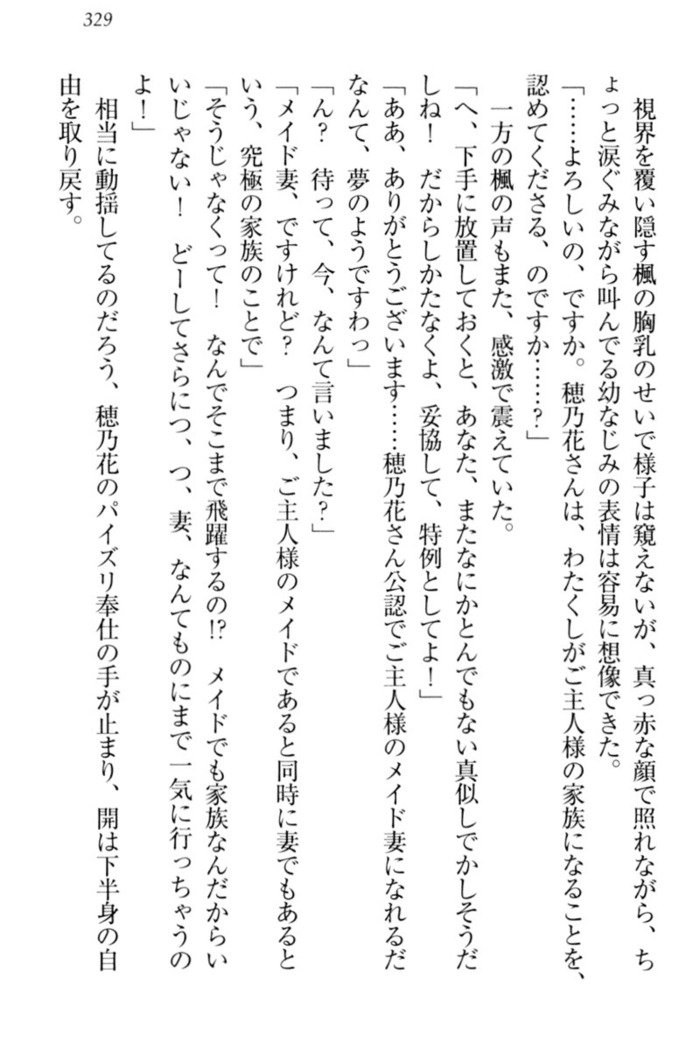 329
視界を覆い隠す楓の胸乳のせいで様子は窺えないが、真っ赤な顔で照れながら、ち
ょっと涙ぐみながら叫んでる幼なじみの表情は容易に想像できた。
「……よろしいの、ですか。穂乃花さんは、わたくしがご主人様の家族になることを、
認めてくださる、のですか……?」
一方の楓の声もまた、感激で震えていた。
「へ、下手に放置しておくと、あなた、またなにかとんでもない真似しでかしそうだ
しね! だからしかたなくよ、妥協して、特例としてよ!」
「ああ、ありがとうございます……穂乃花さん公認でご主人様のメイド妻になれるだ
なんて、夢のようですわっ」
「ん? 待って、今、なんて言いました?」
「メイド妻、ですけれど? つまり、ご主人様のメイドであると同時に妻でもあると
いう、究極の家族のことで」
「そうじゃなくって! なんでそこまで飛躍するの!? メイドでも家族なんだからい
いじゃない! どーしてさらにつ、つ、妻、なんてものにまで一気に行っちゃうの
よ!」
相当に動揺してるのだろう、穂乃花のパイズリ奉仕の手が止まり、開は下半身の自
由を取り戻す。